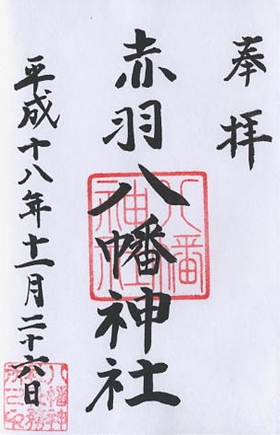 奉拝
赤羽八幡神社
平成十八年十一月二十六日
八幡神社